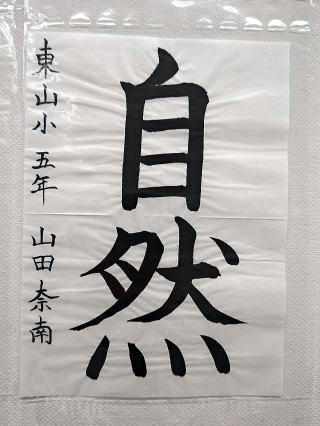 自然
東山小 五年 山田奈南